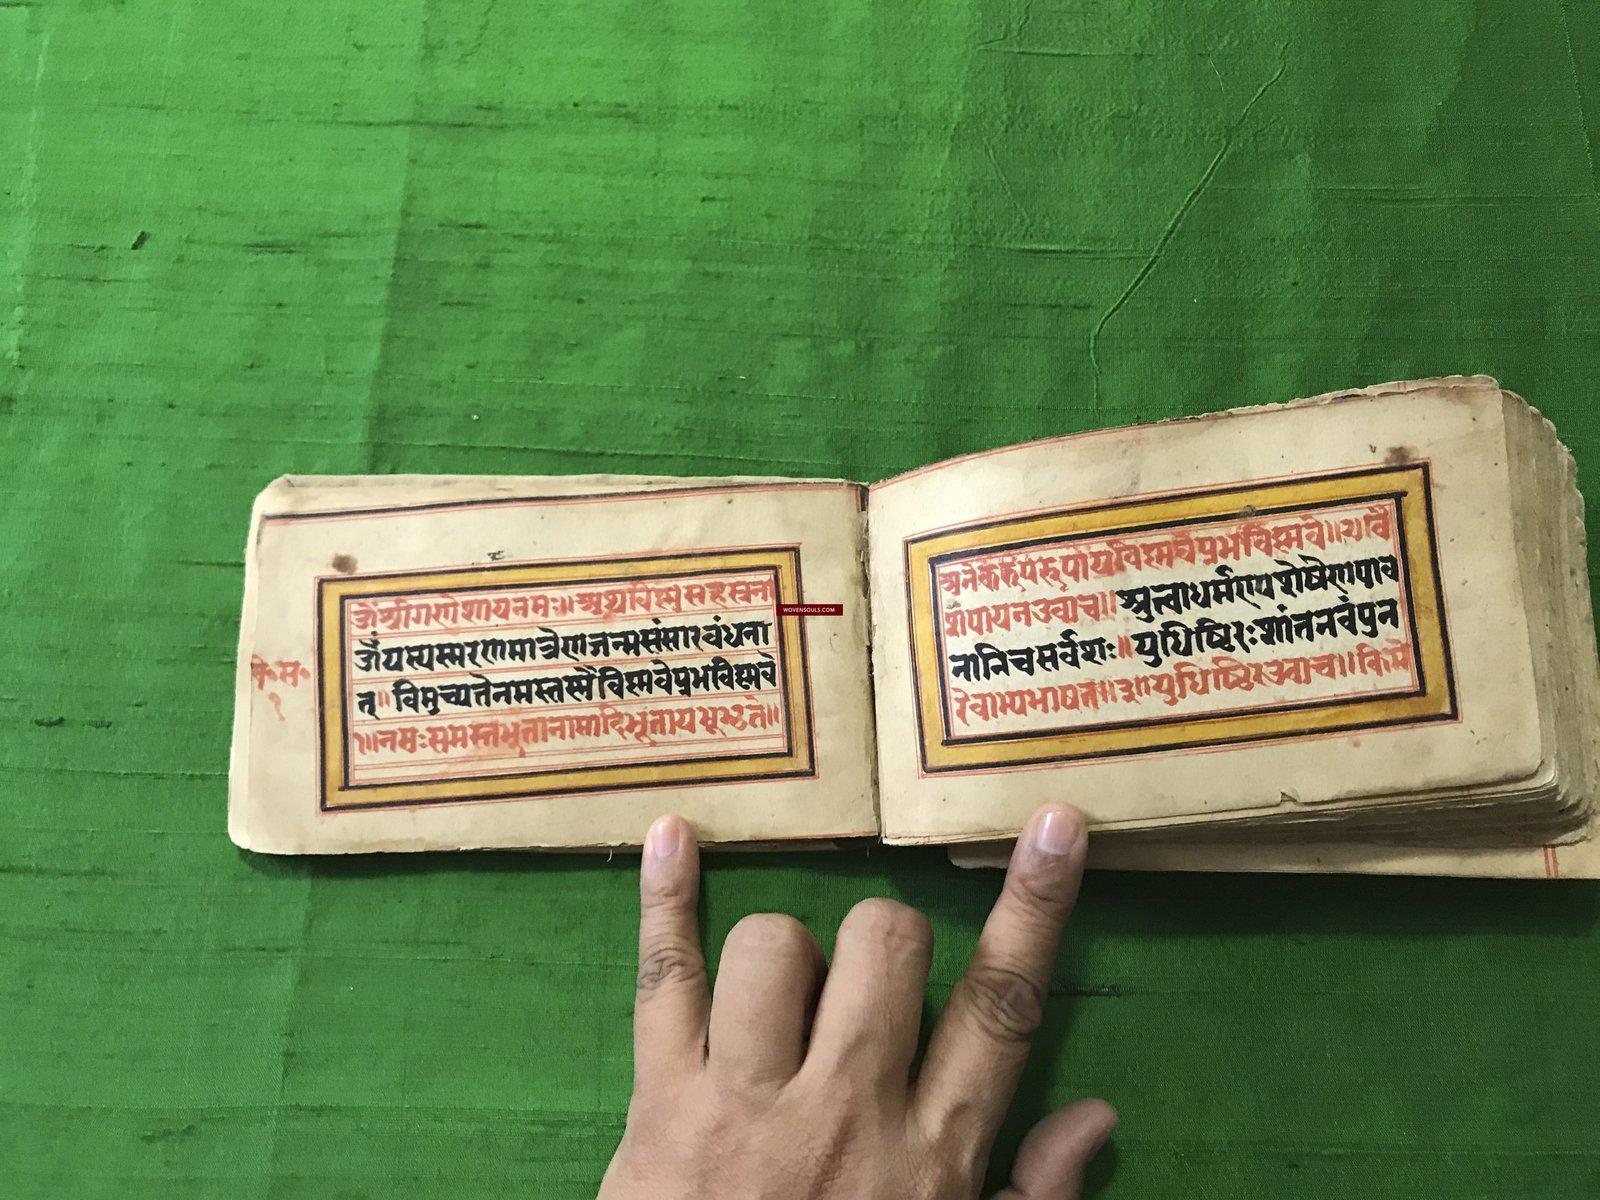 ॐश्रीगणेशायनमः॥अथविष्णुसहस्त्रना
ॐयस्यस्मरणमात्रेणजन्मसंसारबंधना
त्॥विमुच्यतेनमस्तस्मैविष्णवेप्रभविष्णवे
१॥नमःसमस्तभूतानामादिभूतायभूभृते॥
वि॰स॰
१
अनेकरूपरूपायविष्णवेप्रभविष्णवे॥२॥वै
शंपायनउवाच॥श्रुत्वाधर्माण्यशेषेणपाव
नानिचसर्वशः॥युधिष्ठिरःशांतनवंपुन
रेवाभ्यभाषत॥३॥युधिष्ठिरउवाच॥किमे
WOVENSOULS.COM